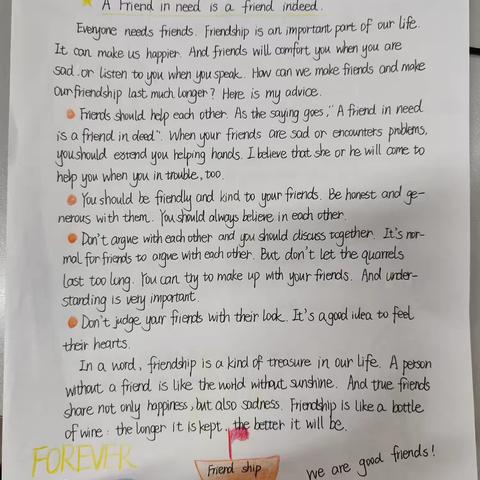 A Friend in need is a friend indeed.
Everyone needs friends. Friendship is an important part of our life.
It can make us happier. And friends will comfort you when you are
sad. or listen to you when you speak. How can we make friends and make
our friendship last much longer? Here is my advice.
Friends should help each other. As the saying goes, "A friend in need
is a friend in deed". When your friends are sad or encounters problems,
you should extend you helping hands. I believe that she or he will come to
help you when you in trouble, too.
You should be friendly and kind to your friends. Be honest and ge-
nerous with them. You should always believe in each other.
Don't argue with each other and you should discuss together. It's nor-
mal for friends to argue with each other. But don't let the quarrels
last too long. You can try to make up with your friends. And under-
standing is very important.
Don't judge your friends with their look. It's a good idea to feel
their hearts.
In a word, friendship is a kind of treasure in our life. A person
without a friend is like the world without sunshine. And true friends
share not only happiness, but also sadness. Friendship is like a bottle
of wine: the longer it is kept, the better it will be.
FOREVER
Friend ship
we are good friends!